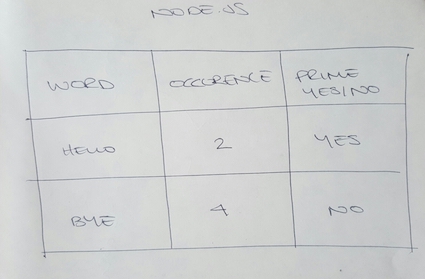 NODE.JS
WORD OCCURENCE PRIME YES/NO
HELLO 2 YES
BYE 4 NO